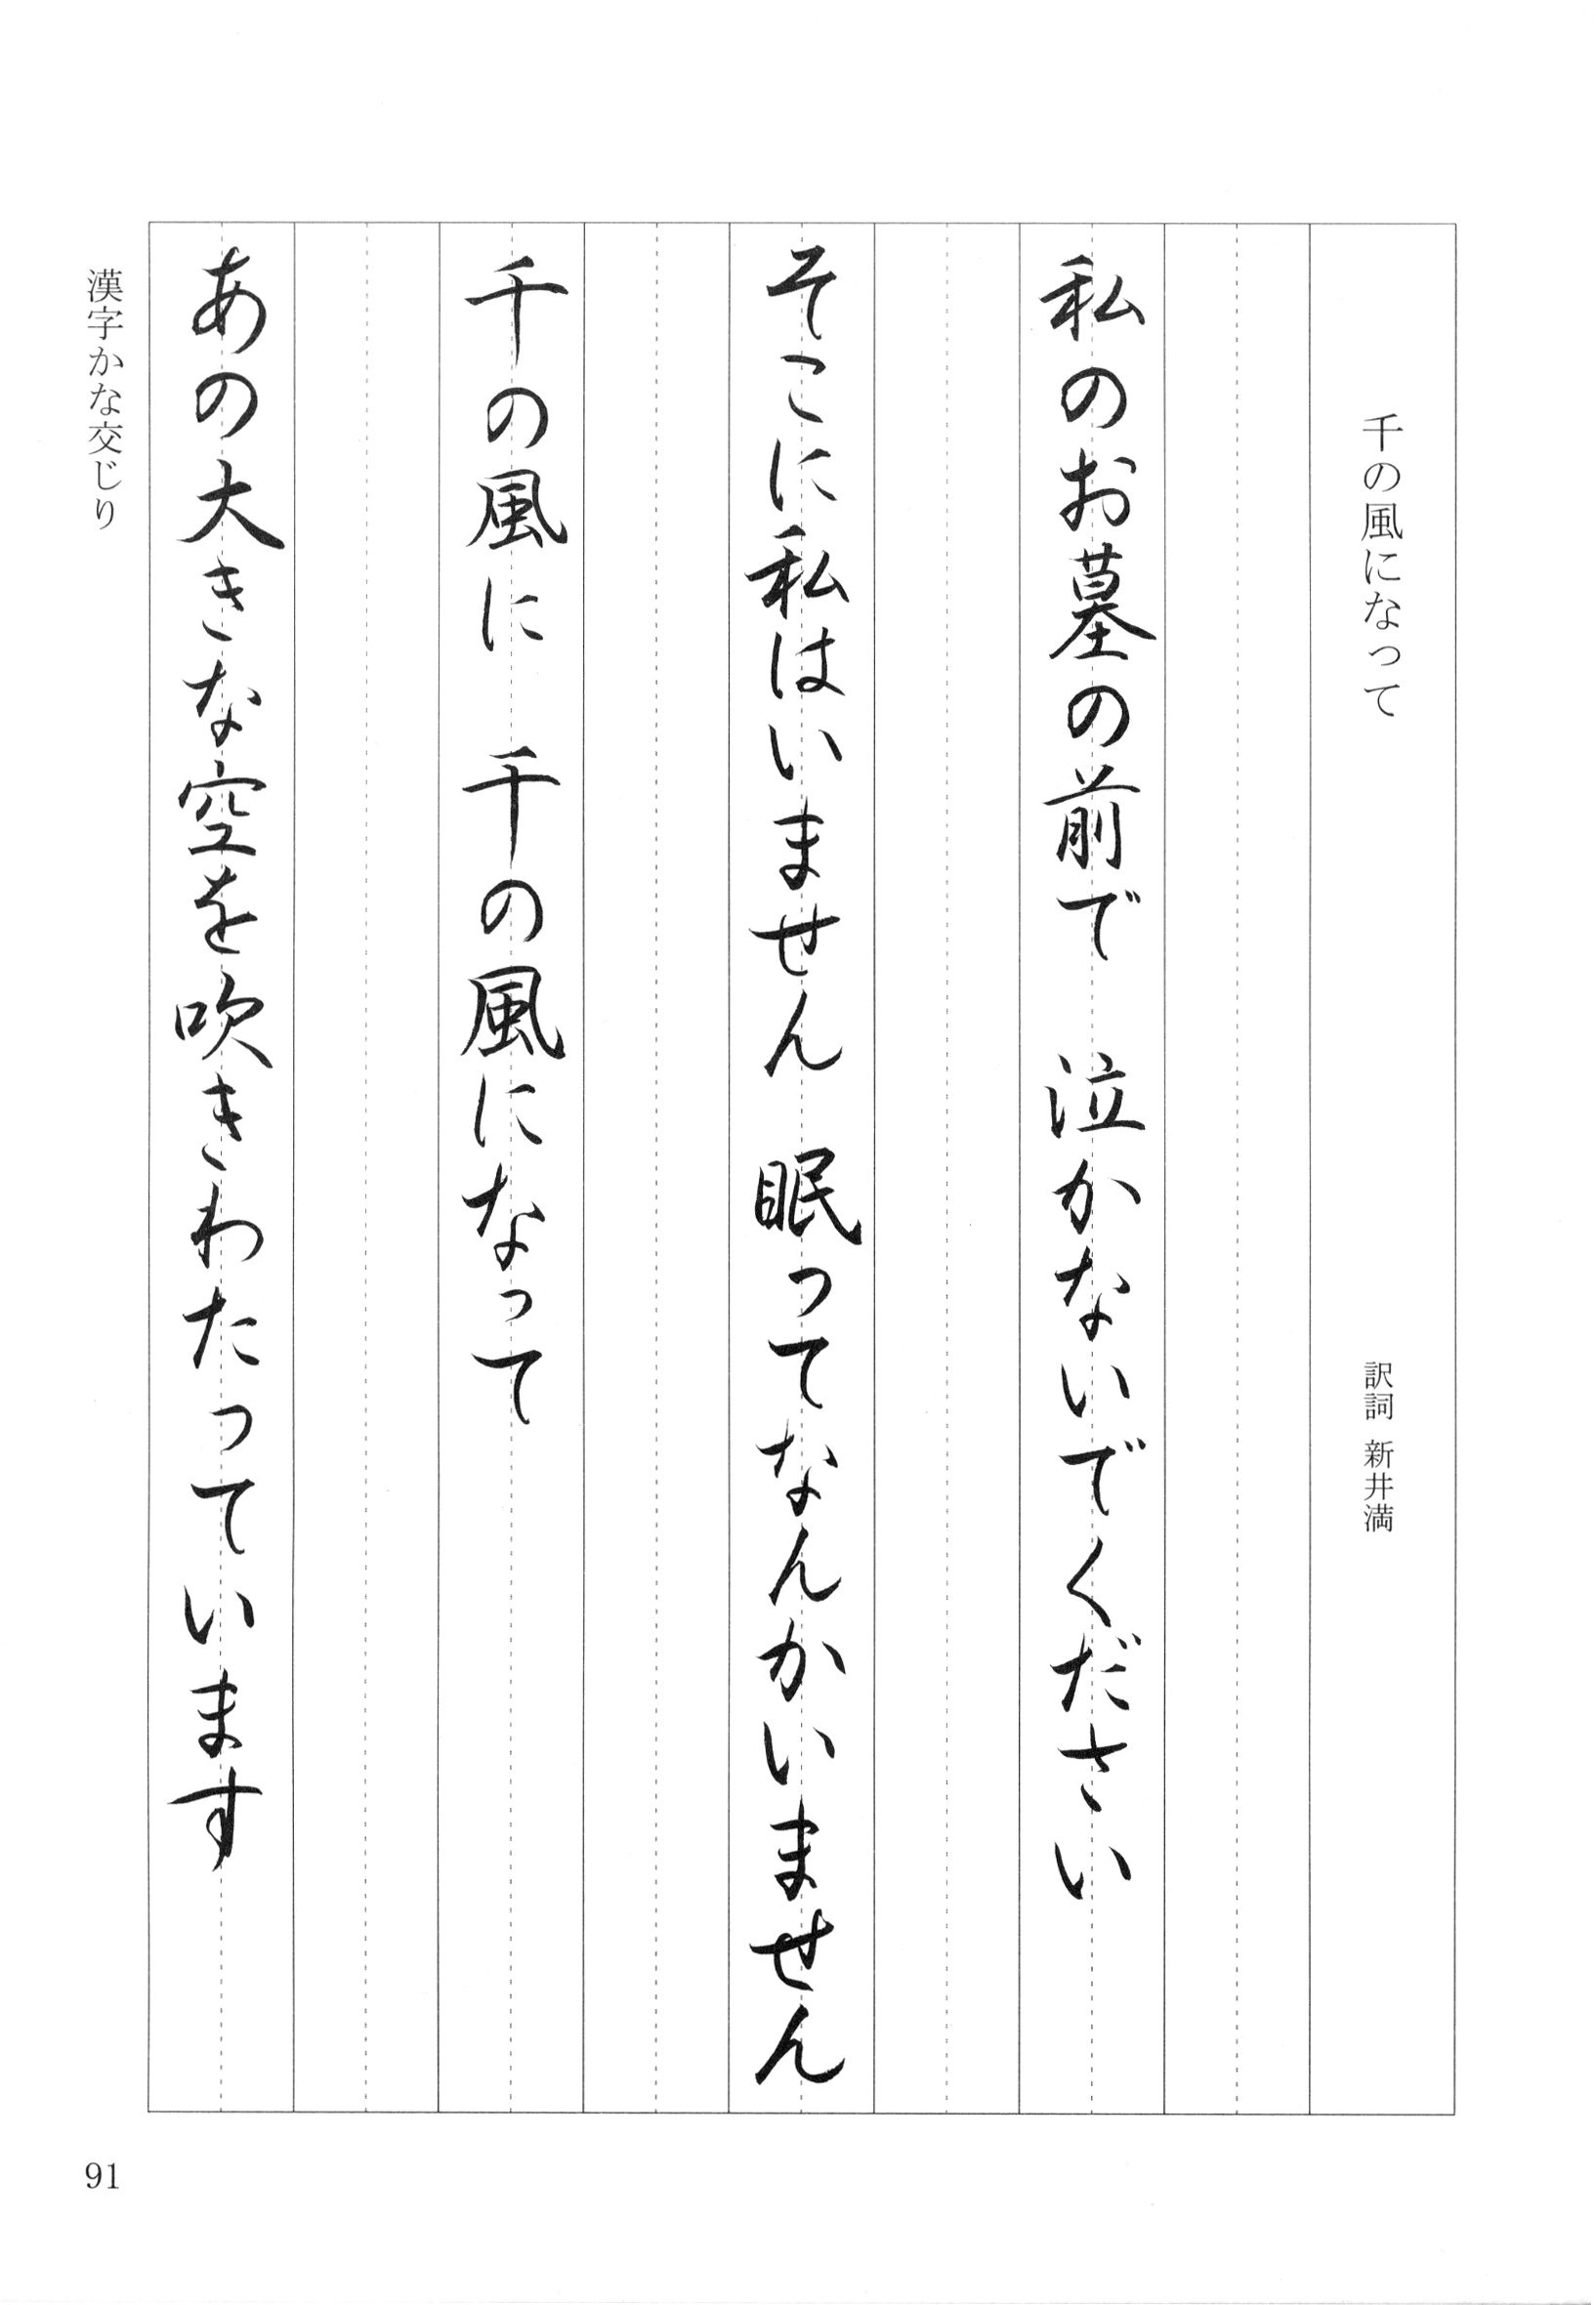 千の風になって 訳詞 新井満
私のお墓の前で 泣かないでください
そこに私はいません 眠ってなんかいません
千の風に 千の風になって
あの大きな空を吹きわたっています
漢字かな交じり
91